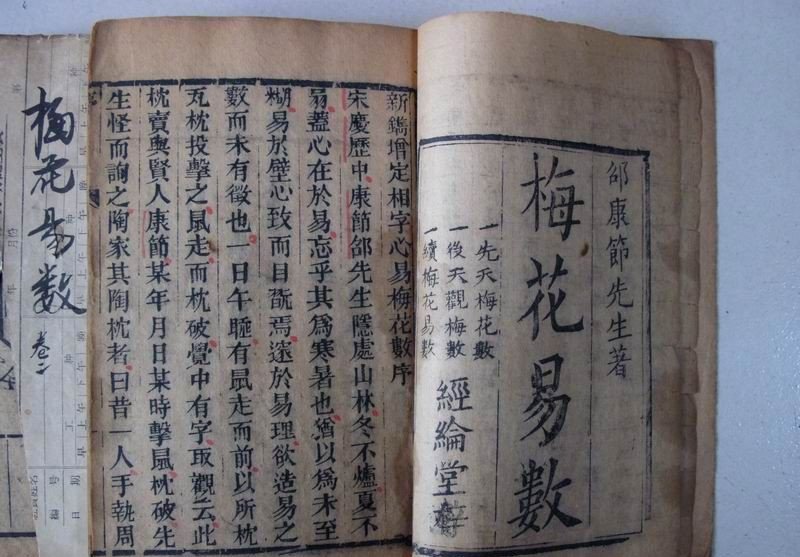 邵康節先生著
梅花易數
一先天梅花數
一後天觀梅數
一續梅花易數
經綸堂
新鐫增定相字心易梅花數序
宋慶歷中康節邵先生隱處山林冬不爐夏不
扇蓋心在於易忘乎其爲寒暑也猶以爲未至
糊易於壁心致而目翫焉遠於易理欲造易之
數而未有徵也一日午睡有鼠走而前以所枕
瓦枕投擊之鼠走而枕破覺中有字取觀云此
枕賣與賢人康節某年月日某時擊鼠枕破先
生怪而詢之陶家其陶枕者曰昔一人手執周
梅花易數 卷二